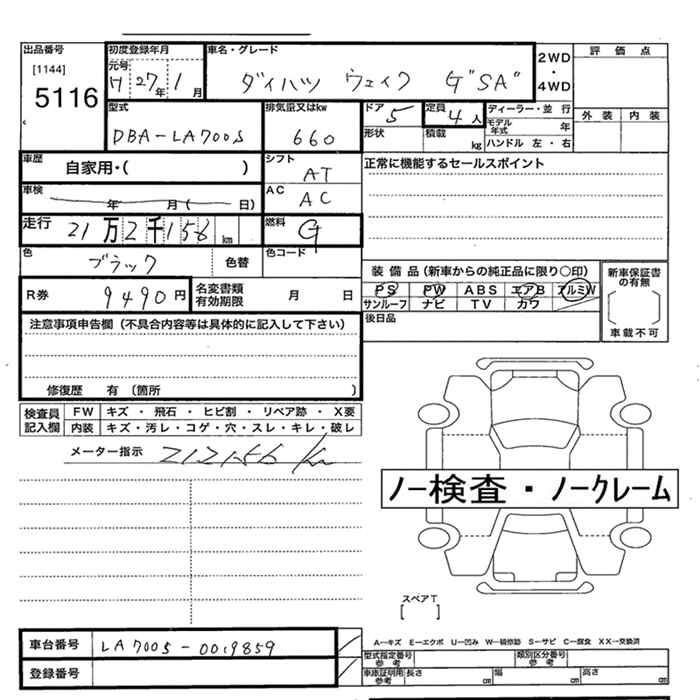 出品番号 初度登録年月 車名・グレード 評価点
[1144] 元号 2WD
5116 H 27年 1月 ダイハツ ウェイク G"SA" ・4WD
型式 排気量又はkw ドア 5 定員 4人 ディーラー・並行 外装 内装
DBA-LA700S 660 形状 積載 kg モデル年式 年
ハンドル 左・右
車歴 自家用・( ) シフト AT 正常に機能するセールスポイント
車検 年 月( 日) AC AC
走行 21万2千156km 燃料 G
色 ブラック 色替 色コード
装備品(新車からの純正品に限り○印) 新車保証書の有無
R券 9490円 名変書類有効期限 月 日 PS PW ABS エアB アルミW
サンルーフ ナビ TV カワ
車載不可
注意事項申告欄(不具合内容等は具体的に記入して下さい) 後日品
修復歴 有(箇所 )
検査員記入欄 FW キズ・飛石・ヒビ割・リペア跡・X要
内装 キズ・汚レ・コゲ・穴・スレ・キレ・破レ
メーター指示 212156 Km
ノー検査・ノークレーム
スペアT
[ ]
A―キズ E―エクボ U―凹み W―補修跡 S―サビ C―腐食 XX―交換済
車台番号 LA700S-0019859 型式指定番号参考 類別区分番号参考
登録番号 車庫証明用参考 長さ cm 幅 cm 高さ cm